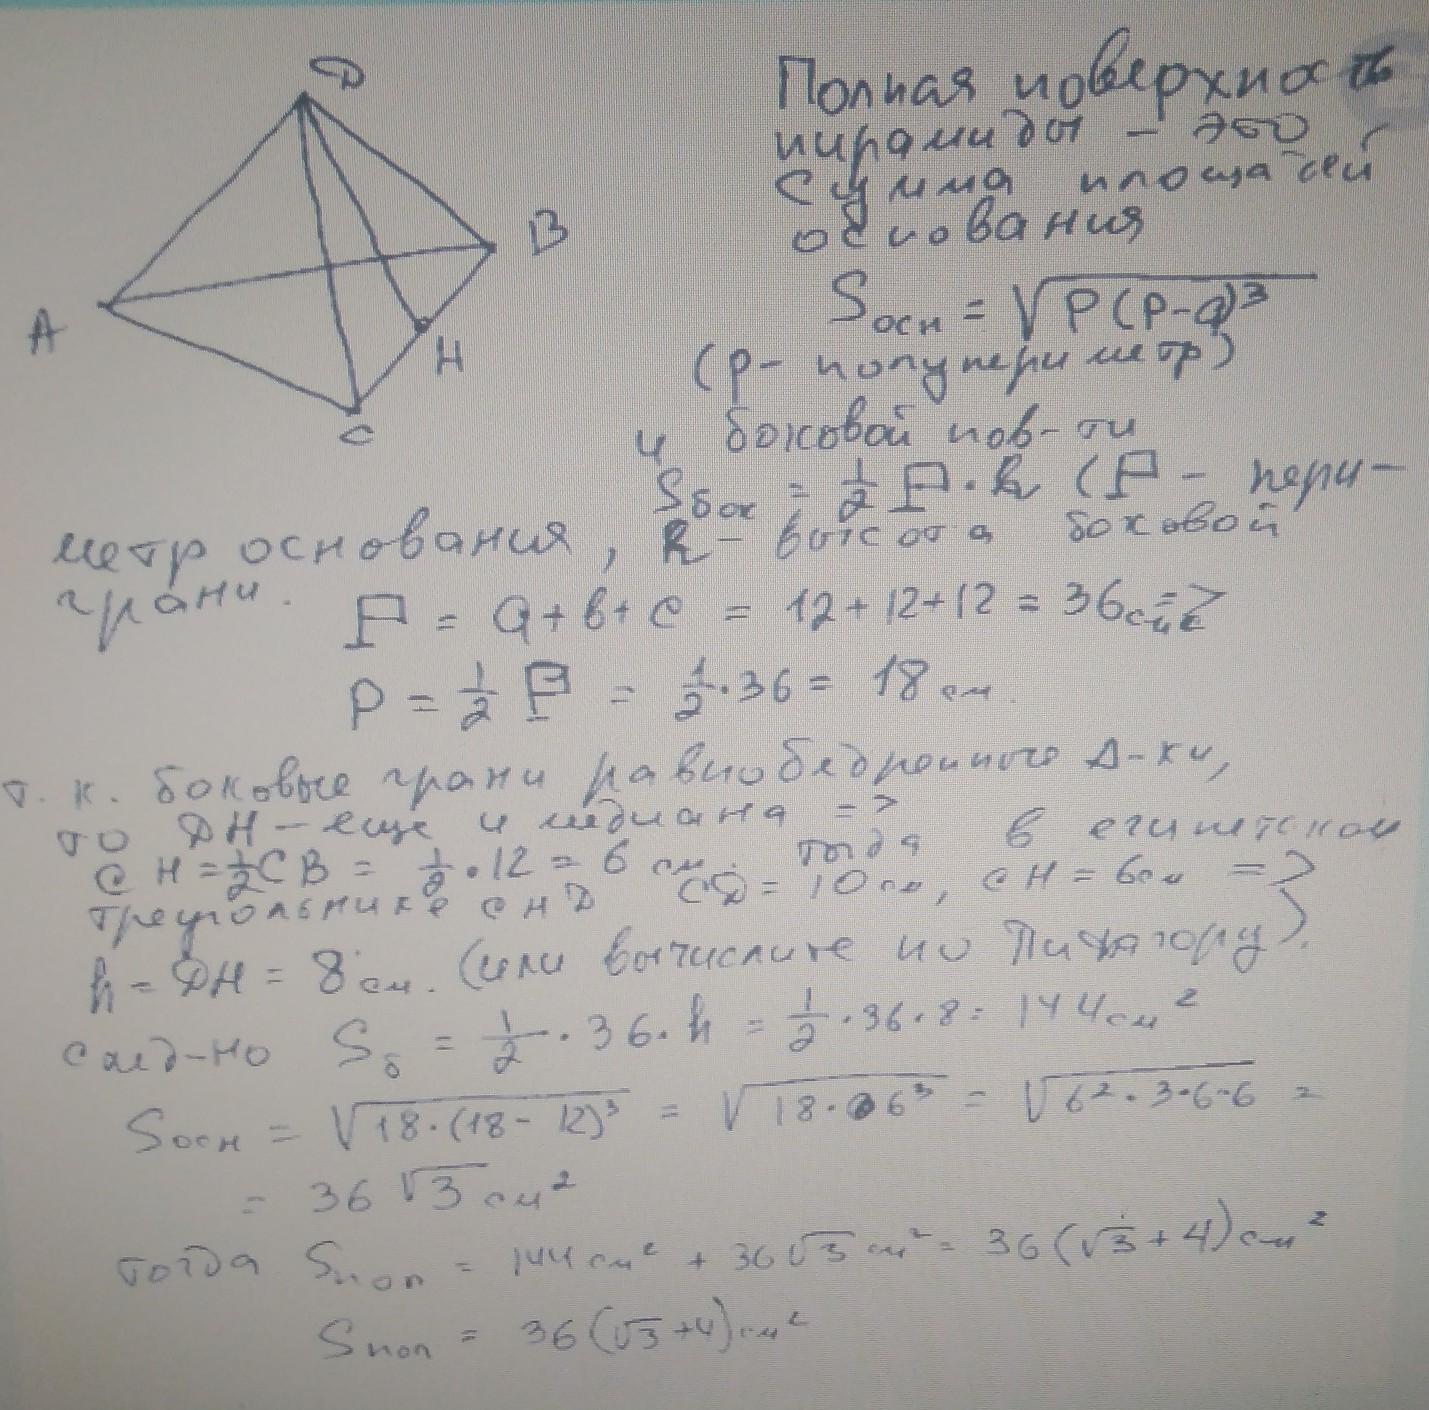 D
A
B
C
H
Полная поверхность
пирамиды - это
сумма площадей
основания
Sосн = √P(P-a)³
(p - полупериметр)
и боковой пов-ти
Sбок = 1/2 P · h (P - пери-
метр основания, h - высота боковой
грани.
P = a + b + c = 12 + 12 + 12 = 36 см =>
P = 1/2 P = 1/2 · 36 = 18 см.
т. к. боковые грани равнобедренного Δ-ки,
то DH - еще и медиана =>
CH = 1/2 CB = 1/2 · 12 = 6 см. тогда в египетском
треугольнике CHD CD = 10 см, CH = 6 см =>
h = DH = 8 см. (или вычислите по Пифагору).
след-но Sб = 1/2 · 36 · h = 1/2 · 36 · 8 = 144 см²
Sосн = √18 · (18 - 12)³ = √18 · 6³ = √6² · 3 · 6 · 6 =
= 36 √3 см²
тогда Sпол = 144 см² + 36 √3 см² = 36 (√3 + 4) см²
Sпол = 36 (√3 + 4) см²